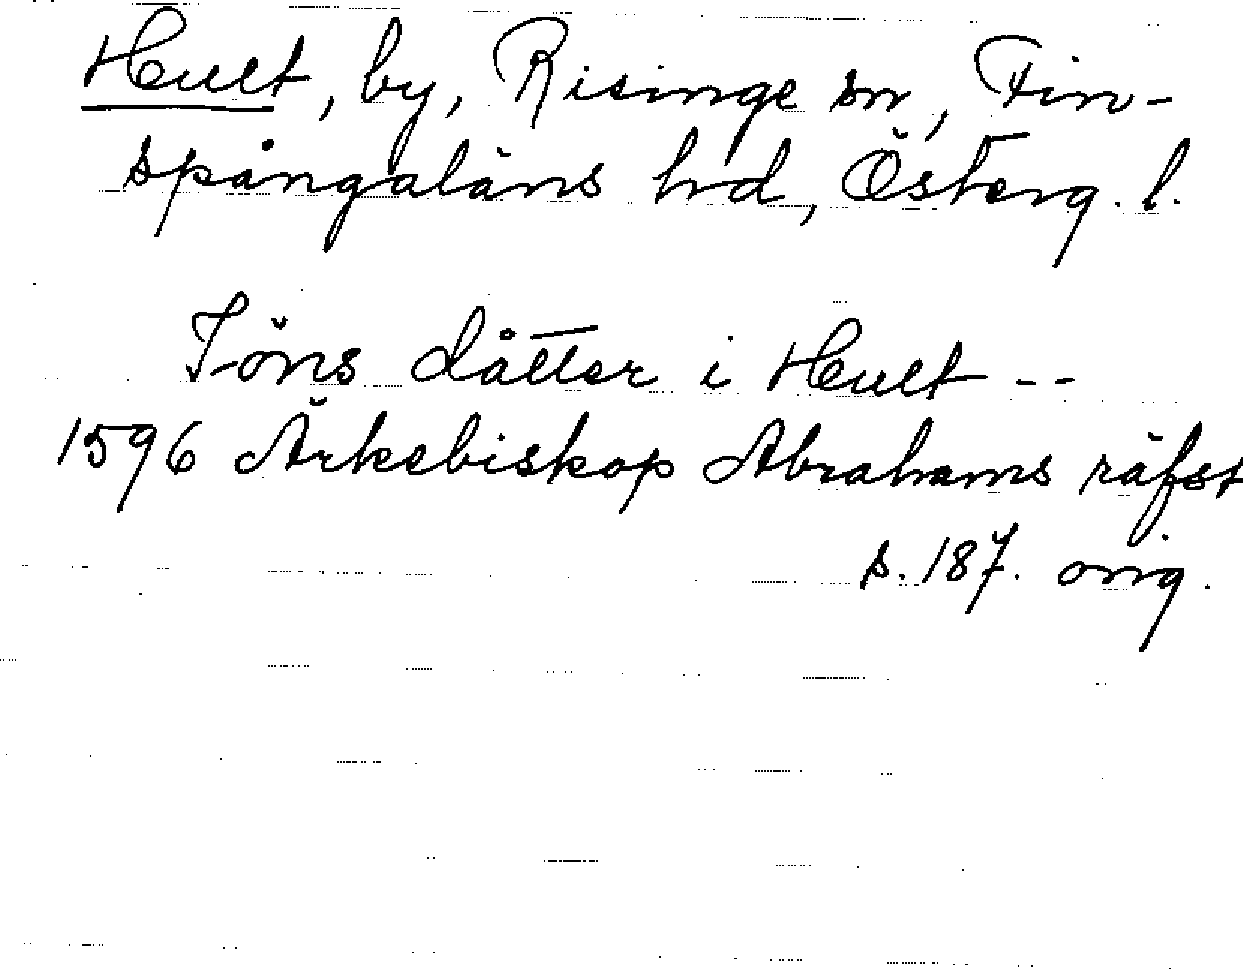 Hult, by, Risinge sn, Fin-
spångaläns hrd, Österg. l.
Jöns dåtter i Hult --
1596 Ärkebiskop Abrahams räfst
s. 187. orig.